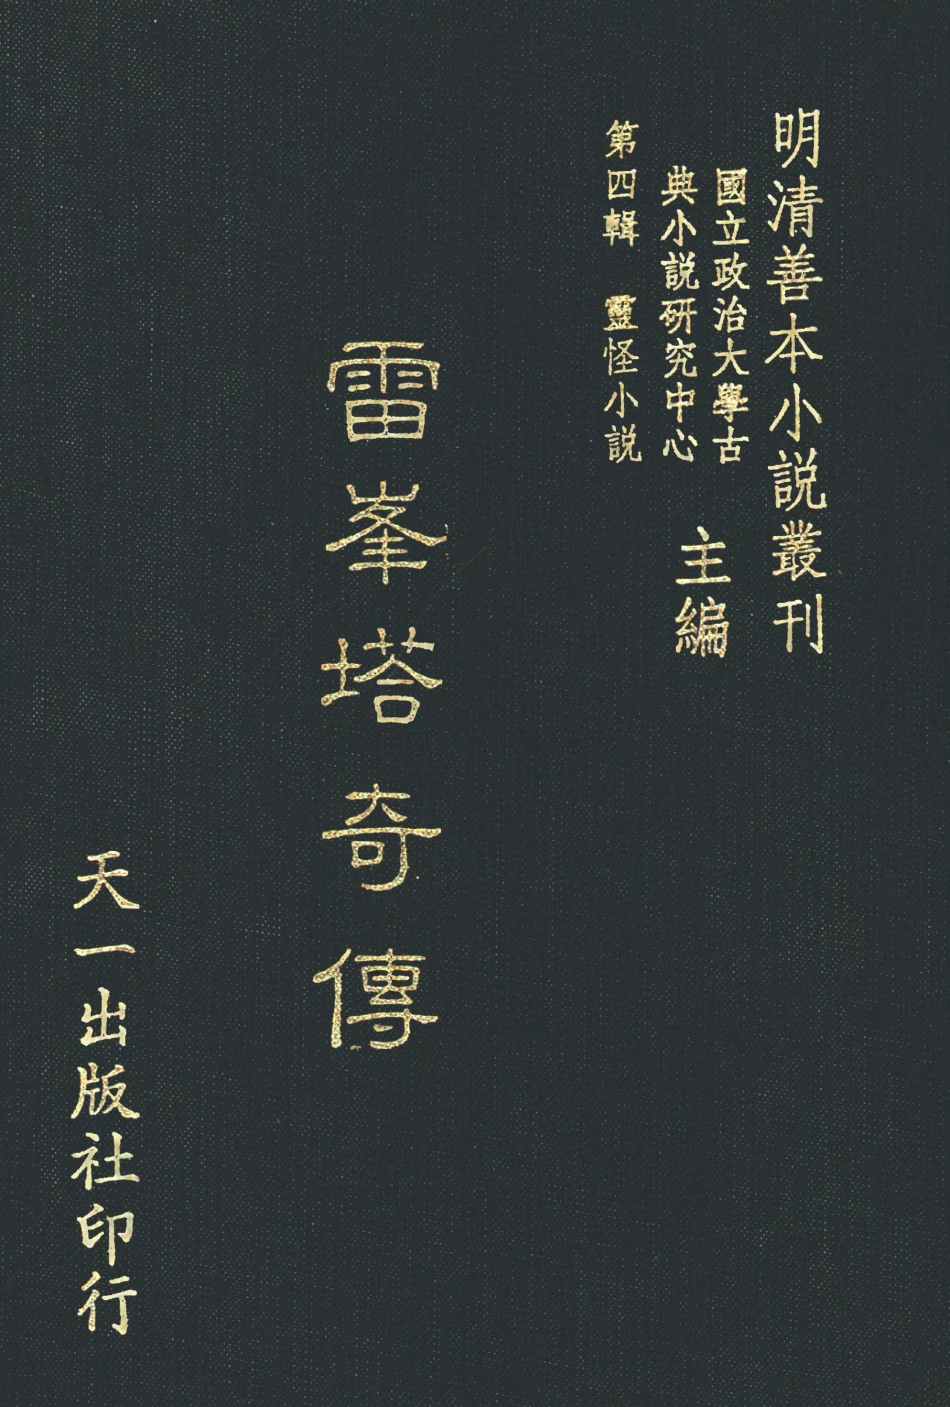 明清善本小説叢刊
國立政治大學古
典小説研究中心
主編
第四輯 靈怪小説
雷峯塔奇傳
天一出版社印行